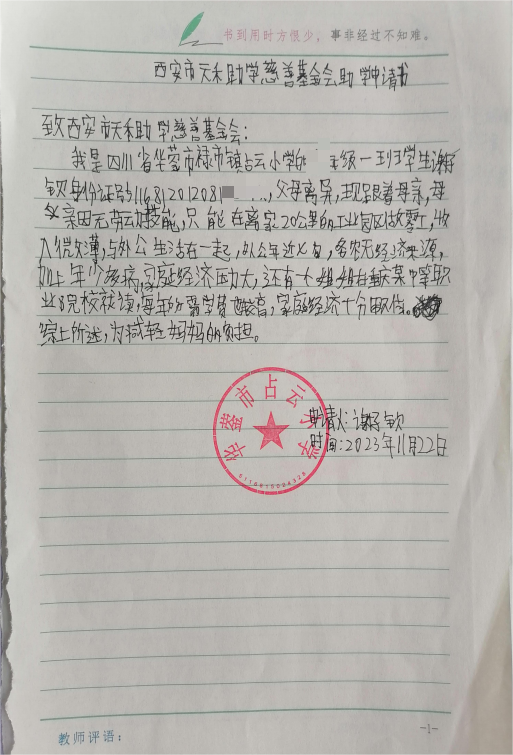 书到用时方恨少，事非经过不知难。
西安市天禾助学慈善基金会助学申请书
致西安市天禾助学慈善基金会：
我是四川省华蓥市禄市镇占云小学 年级一班学生谢
钦身份证号 父母离异，现跟着母亲，母
亲因无劳动技能，只能在离家20公里的工业园区做零工，收
入微薄，与外公生活在一起，外公年近七旬，务农无经济来源，
加上年 多病，家庭经济压力大，还有一个姐姐在重庆某中等职
业院校就读，每年 需学费 ，家庭经济十分困难。
综上所述，为减轻妈妈的负担。
华蓥市占云小学
申请人：谢 钦
时间：2023年11月22日
教师评语：
-1-